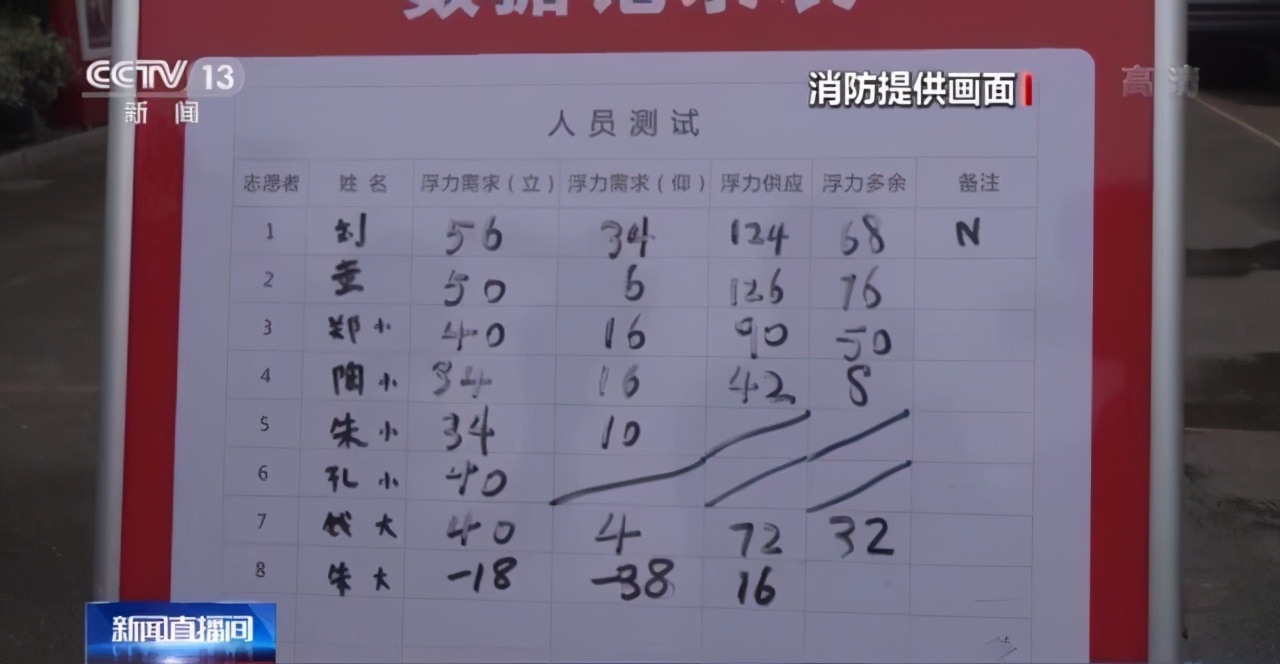 数据记录表
CCTV 13
新闻
消防提供画面
高清
人员测试
志愿者 姓名 浮力需求（立） 浮力需求（仰） 浮力供应 浮力多余 备注
1 刘 56 34 124 68 N
2 童 50 6 126 76
3 郑小 40 16 90 50
4 陶小 34 16 42 8
5 朱小 34 10
6 孔小 40
7 钱大 40 4 72 32
8 朱大 -18 -38 16
新闻直播间